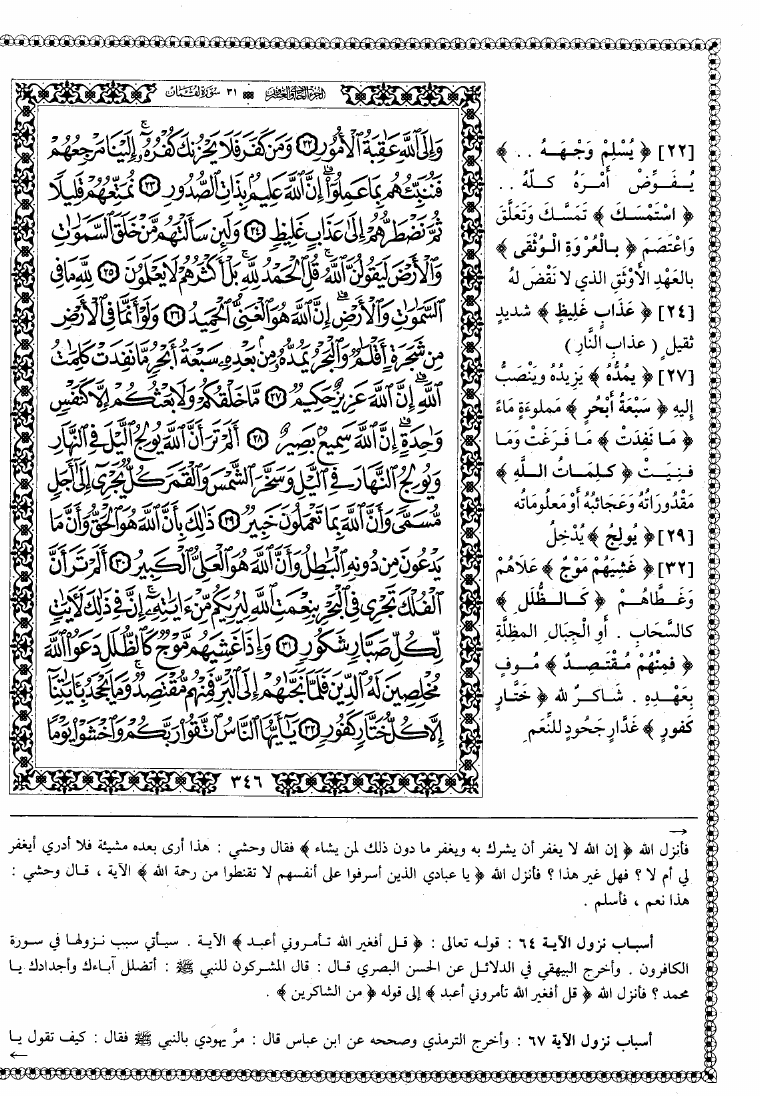 الجزء الحادي والعشرون ٣١ سورة لقمان
وَإِلَى اللَّهِ عَاقِبَةُ الْأُمُورِ ﴿٢٢﴾ وَمَن كَفَرَ فَلَا يَحْزُنكَ كُفْرُهُ إِلَيْنَا مَرْجِعُهُمْ
فَنُنَبِّئُهُم بِمَا عَمِلُوا إِنَّ اللَّهَ عَلِيمٌ بِذَاتِ الصُّدُورِ ﴿٢٣﴾ نُمَتِّعُهُمْ قَلِيلًا
ثُمَّ نَضْطَرُّهُمْ إِلَى عَذَابٍ غَلِيظٍ ﴿٢٤﴾ وَلَئِن سَأَلْتَهُم مَّنْ خَلَقَ السَّمَوَاتِ
وَالْأَرْضَ لَيَقُولُنَّ اللَّهُ قُلِ الْحَمْدُ لِلَّهِ بَلْ أَكْثَرُهُمْ لَا يَعْلَمُونَ ﴿٢٥﴾ لِلَّهِ مَا فِي
السَّمَوَاتِ وَالْأَرْضِ إِنَّ اللَّهَ هُوَ الْغَنِيُّ الْحَمِيدُ ﴿٢٦﴾ وَلَوْ أَنَّمَا فِي الْأَرْضِ
مِن شَجَرَةٍ أَقْلَامٌ وَالْبَحْرُ يَمُدُّهُ مِن بَعْدِهِ سَبْعَةُ أَبْحُرٍ مَّا نَفِدَتْ كَلِمَاتُ
اللَّهِ إِنَّ اللَّهَ عَزِيزٌ حَكِيمٌ ﴿٢٧﴾ مَّا خَلْقُكُمْ وَلَا بَعْثُكُمْ إِلَّا كَنَفْسٍ
وَاحِدَةٍ إِنَّ اللَّهَ سَمِيعٌ بَصِيرٌ ﴿٢٨﴾ أَلَمْ تَرَ أَنَّ اللَّهَ يُولِجُ اللَّيْلَ فِي النَّهَارِ
وَيُولِجُ النَّهَارَ فِي اللَّيْلِ وَسَخَّرَ الشَّمْسَ وَالْقَمَرَ كُلٌّ يَجْرِي إِلَى أَجَلٍ
مُّسَمًّى وَأَنَّ اللَّهَ بِمَا تَعْمَلُونَ خَبِيرٌ ﴿٢٩﴾ ذَلِكَ بِأَنَّ اللَّهَ هُوَ الْحَقُّ وَأَنَّ مَا
يَدْعُونَ مِن دُونِهِ الْبَاطِلُ وَأَنَّ اللَّهَ هُوَ الْعَلِيُّ الْكَبِيرُ ﴿٣٠﴾ أَلَمْ تَرَ أَنَّ
الْفُلْكَ تَجْرِي فِي الْبَحْرِ بِنِعْمَتِ اللَّهِ لِيُرِيَكُم مِّنْ آيَاتِهِ إِنَّ فِي ذَلِكَ لَآيَاتٍ
لِّكُلِّ صَبَّارٍ شَكُورٍ ﴿٣١﴾ وَإِذَا غَشِيَهُم مَّوْجٌ كَالظُّلَلِ دَعَوُا اللَّهَ
مُخْلِصِينَ لَهُ الدِّينَ فَلَمَّا نَجَّاهُمْ إِلَى الْبَرِّ فَمِنْهُم مُّقْتَصِدٌ وَمَا يَجْحَدُ بِآيَاتِنَا
إِلَّا كُلُّ خَتَّارٍ كَفُورٍ ﴿٣٢﴾ يَا أَيُّهَا النَّاسُ اتَّقُوا رَبَّكُمْ وَاخْشَوْا يَوْمًا
٣٤٦
[٢٢] ﴿ يُسْلِمْ وَجْهَهُ .. ﴾
يُفَوِّضْ أَمْرَهُ كلَّهُ ..
﴿ اسْتَمْسَكَ ﴾ تَمَسَّكَ وَتَعَلَّقَ
وَاعْتَصَمَ ﴿ بِالْعُرْوَةِ الْوُثْقَى ﴾
بالعَهْدِ الأَوْثَقِ الذي لا نَقْضَ لهُ
[٢٤] ﴿ عَذَابٍ غَلِيظٍ ﴾ شديدٍ
ثقيل ( عذابِ النَّارِ )
[٢٧] ﴿ يمُدُّهُ ﴾ يَزيدُهُ وَيَنْصَبُّ
إليهِ ﴿ سَبْعَةُ أَبْحُرٍ ﴾ مَملوءَةٍ مَاءً
﴿ مَا نَفِدَتْ ﴾ مَا فَرَغَتْ وَمَا
فَنِيَتْ ﴿ كَلِمَاتُ اللَّهِ ﴾
مَقْدُورَاتُهُ وَعَجَائبُهُ أَوْ مَعلُومَاتُه
[٢٩] ﴿ يُولِجُ ﴾ يُدْخِلُ
[٣٢] ﴿ غَشِيَهُمْ مَوْجٌ ﴾ عَلَاهُمْ
وَغَطَّاهُمْ ﴿ كَالظُّلَلِ ﴾
كالسَّحَابِ . أَوِ الجِبَالِ المظِلَّةِ
﴿ فَمِنْهُمْ مُقْتَصِدٌ ﴾ مُوفٍ
بِعَهْدِهِ . شَاكرٌ لله ﴿ خَتَّارٍ
كَفورٍ ﴾ غَدَّارٍ جَحُودٍ للنِّعَمِ
فأنزل الله ﴿ إن الله لا يغفر أن يشرك به ويغفر ما دون ذلك لمن يشاء ﴾ فقال وحشي : هذا أرى بعده مشيئة فلا أدري أيغفر
لي أم لا ؟ فهل غير هذا ؟ فأنزل الله ﴿ يا عبادي الذين أسرفوا على أنفسهم لا تقنطوا من رحمة الله ﴾ الآية ، قال وحشي :
هذا نعم ، فأسلم .
أسباب نزول الآية ٦٤ : قوله تعالى : ﴿ قل أفغير الله تأمروني أعبد ﴾ الآية . سيأتي سبب نزولها في سورة
الكافرون . وأخرج البيهقي في الدلائل عن الحسن البصري قال : قال المشركون للنبي ﷺ : أتضلل آباءك وأجدادك يا
محمد ؟ فأنزل الله ﴿ قل أفغير الله تأمروني أعبد ﴾ إلى قوله ﴿ من الشاكرين ﴾ .
أسباب نزول الآية ٦٧ : وأخرج الترمذي وصححه عن ابن عباس قال : مرَّ يهودي بالنبي ﷺ فقال : كيف تقول يا